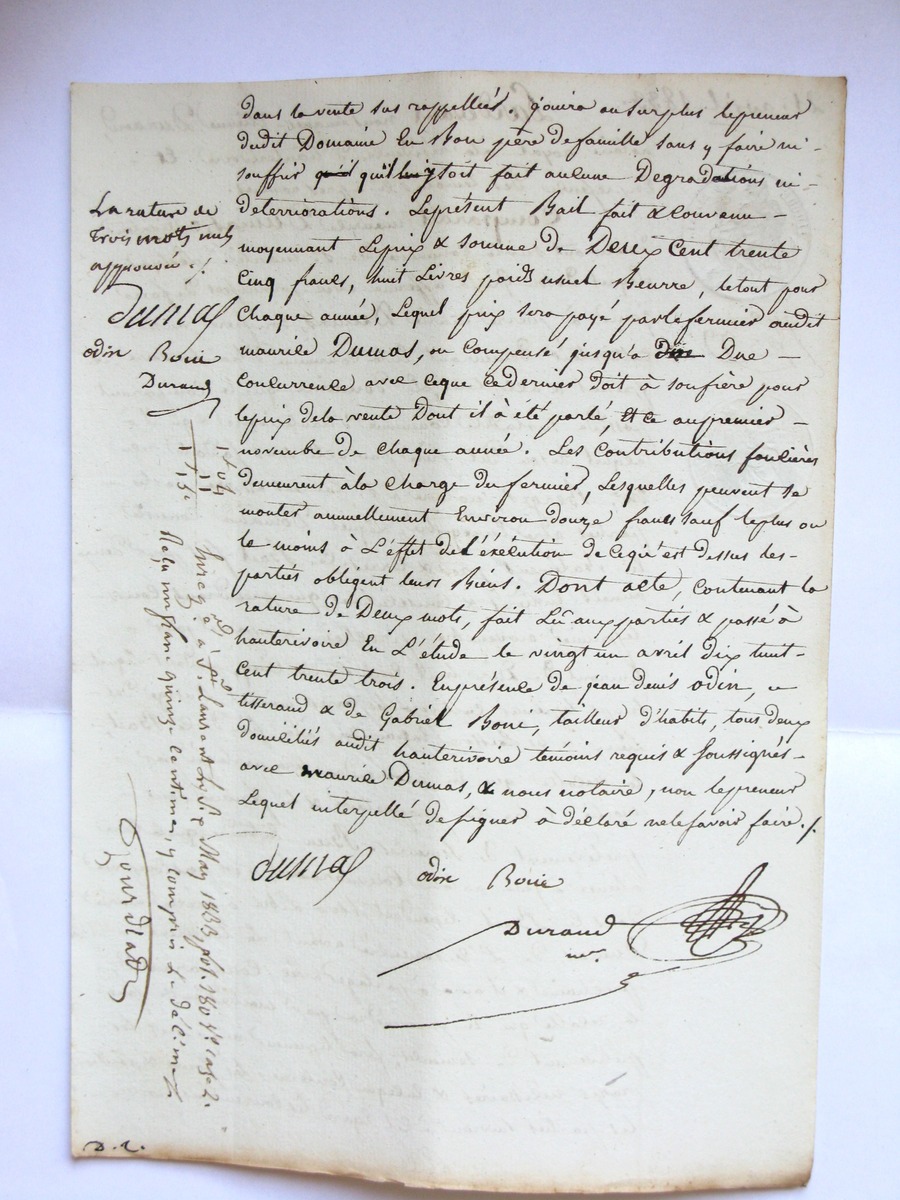 dans la vente sus rappellés. jouira au surplus le preneur
dudit Domaine En Bon père defamille sans y faire ni -
souffrir qu'il soit fait aucune Degradations ni -
deteriorations. Leprésent Bail fait & convenu -
moyennant Leprix & somme de Deux Cent trente
Cinq francs, huit Livres poids usuel Beurre, letout pour
Chaque année, Lequel prix sera payé parlefermier audit
maurice Dumas, ou Compensé jusqu'a Due -
Concurrence avec ceque cedernier doit à sonfrère pour
leprix dela vente Dont il à été parlé, Et ce aupremier -
novembre de chaque année. Les Contributions foncières
Demeurent àla Charge du fermier, Lesquelles peuvent se
monter annuellement Environ douze francs sauf leplus ou
le moins à L'éffet de L'éxécution de cequi est dessus les -
parties obligent leurs Biens. Dont acte, contenant la
rature de Deux mots, fait Lû aux parties & passé à
hauterivoire En L'étude le vingt un avril dix huit -
Cent trente trois. Enprésence de jean denis odin,
tisserand & de Gabriel Boni, tailleur d'habits, tous deux
domiciliés audit hauterivoire témoins requis & soussignés -
avec maurice Dumas, & nous notaire, non lepreneur
Lequel interpellé designer à déclaré nelesavoir faire ./.
Dumas odin Boni
Durand
nre.
La rature de
Trois mots nuls
approuvée ./.
Dumas
odin Boni
Durand
Enreg. à St. Laurent le Six May 1833, fol. 180 vo. case 2.
Reçu un franc quinze centimes, y compris le décime
D. 2.